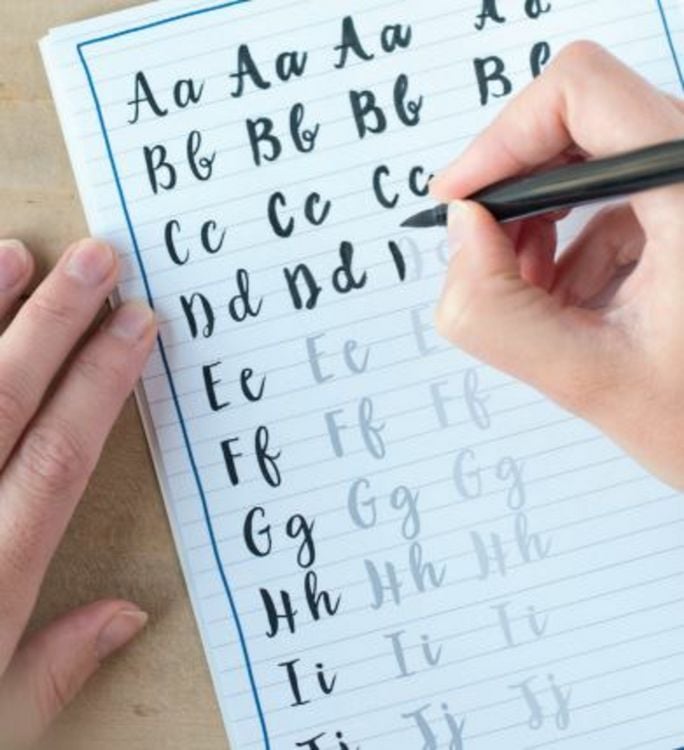 Aa Aa Aa A a
Bb Bb Bb B b
Cc Cc Cc
Dd Dd D
Ee Ee E
Ff Ff Ff
Gg Gg Gg
Hh Hh Hh
Ii Ii Ii
Jj Jj Jj